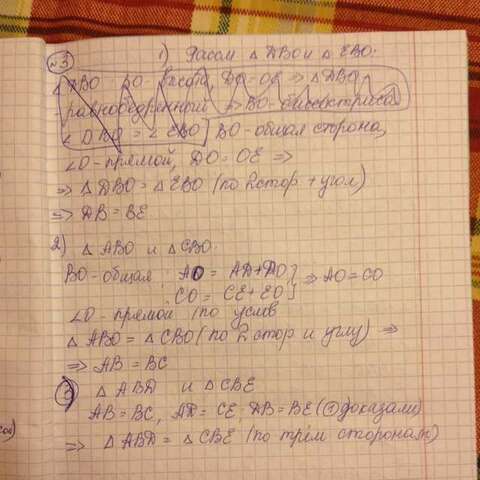 №3
1) Рассм △ DBO и △ EBO:
△ DBO BO - высота, DO = OE ⇒ △ DBO
- равнобедренный ⇒ BO - биссектриса
∠ DBO = ∠ EBO] BO - общая сторона,
∠O - прямой, DO = OE ⇒
⇒ △ DBO = △ EBO (по 2 стор + угол)
⇒ DB = BE
2) △ ABO и △ CBO.
BO - общая, AO = AD + DO } ⇒ AO = CO
CO = CE + EO
∠O - прямой (по услв
△ ABO = △ CBO (по 2 стор и углу) ⇒
⇒ AB = BC
3) △ ABD и △ CBE
AB = BC, AD = CE, DB = BE (1) доказали)
⇒ △ ABD = △ CBE (по трём сторонам)